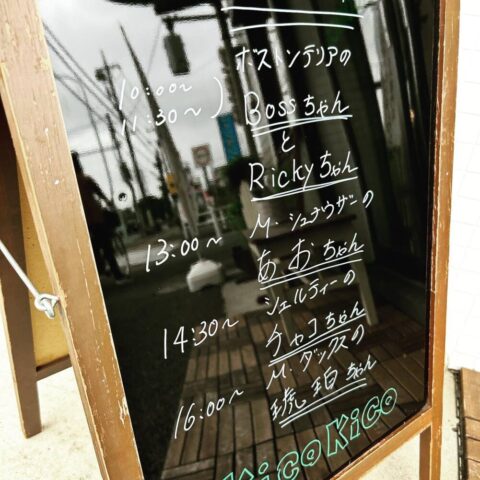 ボストンテリアの
10:00~
11:30~
Bossちゃん
と
Rickyちゃん
M・シュナウザーの
13:00~
あおちゃん
シェルティーの
14:30~
チャコちゃん
M・ダックスの
16:00~
琥珀ちゃん
KicoKico